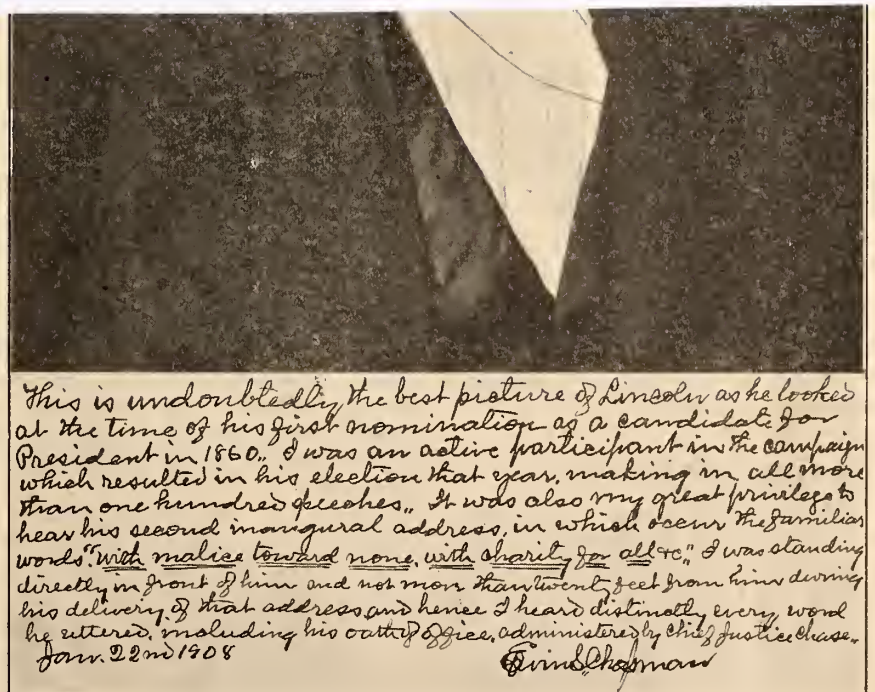 This is undoubtedly the best picture of Lincoln as he looked
at the time of his first nomination as a candidate for
President in 1860.. I was an active participant in the campaign
which resulted in his election that year, making in all more
than one hundred speeches.. It was also my great privilege to
hear his second inaugural address, in which occur the familiar
words "with malice toward none, with charity for all &c" I was standing
directly in front of him and not more than twenty feet from him during
his delivery of that address and hence I heard distinctly every word
he uttered, including his oath of office, administered by Chief Justice Chase..
Jan. 22nd 1908 Ervin S. Chapman